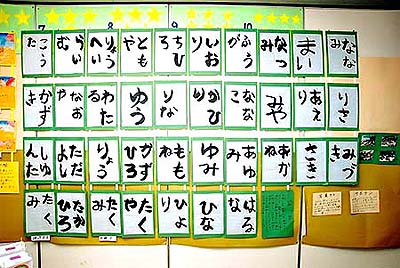 7 8 9 10
ななみ
まい
なつみ
ふうが
いおり
ちひろ
ともや
りょうへい
らいむ
こうた
りさ
みや
ななこ
ひかり
りな
ゆう
わたる
なおや
みづき
さき
あかね
あゆみ
ゆみ
もも
かずひろ
りょう
ただよし
しゅんた
はるな
ひな
ひより
たくや
たくみ
たかひろ
たくみ